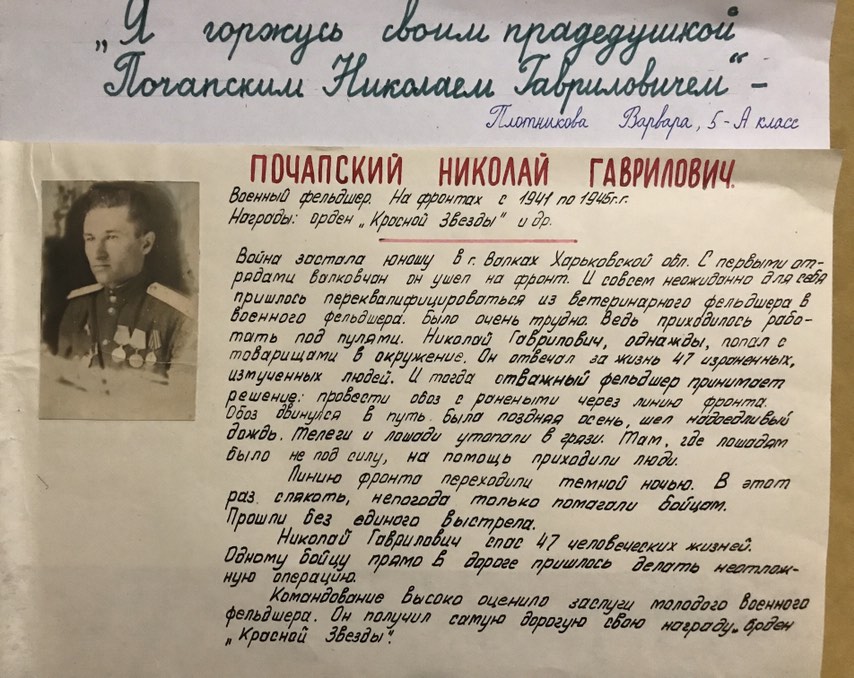 „Я горжусь своим прадедушкой
Почапским Николаем Гавриловичем“ –
Плотникова Варвара, 5-А класс
ПОЧАПСКИЙ НИКОЛАЙ ГАВРИЛОВИЧ.
Военный фельдшер. На фронтах с 1941 по 1945 г.г.
Награды: орден „Красной Звезды" и др.
Война застала юношу в г. Валках Харьковской обл. С первыми от-
рядами валковчан он ушел на фронт. И совсем неожиданно для себя
пришлось переквалифицироваться из ветеринарного фельдшера в
военного фельдшера. Было очень трудно. Ведь приходилось рабо-
тать под пулями. Николай Гаврилович, однажды, попал с
товарищами в окружение. Он отвечал за жизнь 47 израненных,
измученных людей. И тогда отважный фельдшер принимает
решение: провести обоз с ранеными через линию фронта.
Обоз двинулся в путь. Была поздняя осень, шел надоедливый
дождь. Телеги и лошади утопали в грязи. Там, где лошадям
было не под силу, на помощь приходили люди.
Линию фронта переходили темной ночью. В этот
раз слякоть, непогода только помогали бойцам.
Прошли без единого выстрела.
Николай Гаврилович спас 47 человеческих жизней.
Одному бойцу прямо в дороге пришлось делать неотлож-
ную операцию.
Командование высоко оценило заслуги молодого военного
фельдшера. Он получил самую дорогую свою награду„ орден
„Красной Звезды".